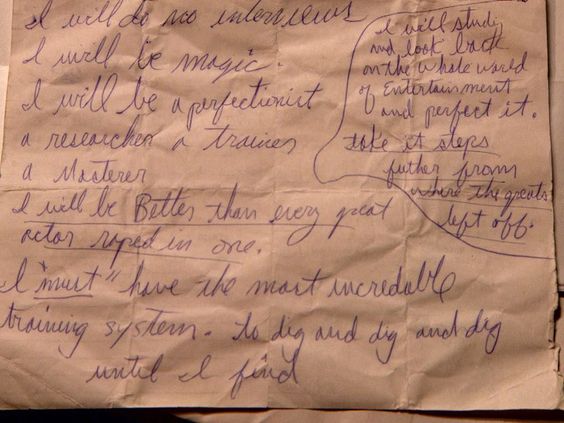 I will do no interviews
I will be magic.
I will be a perfectionist
a researcher a trainer
a Masterer
I will be Better than every great
actor roped in one.
I "must" have the most incredable
training system. to dig and dig and dig
until I find
I will study
and look back
on the whole world
of Entertainment
and perfect it.
take it steps
futher from
where the greats
left off.